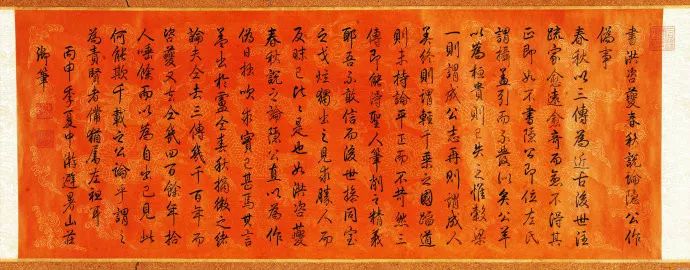 書洪咨夔春秋說論隱公作
偽事
春秋以三傳為近古後世注
疏家愈遠愈奇而愈不得其
正即如不書隱公即位左氏
謂攝蓋引而不發以矣公羊
以為桓貴則已失之惟穀梁
一則謂成公志再則謂成人
美終則謂輕千乘之國蹈道
則未持論平正而不苛然三
傳即能得聖人筆削之精義
耶吾不敢信而後世操同室
之戈炫獨出之見求勝人而
反昧之是也如洪咨夔
春秋說之論隱公直以為作
偽日拙吹求實已甚焉其言
蓋出於盧仝春秋摘微之緒
論夫仝去三傳幾千百年而
咨夔又去仝幾四百餘年拾
人唾餘而以為自出己見此
何能欺千載之公論乎謂之
為責賢者備猶屬左袒耳
丙申季夏中澣避暑山莊
御筆